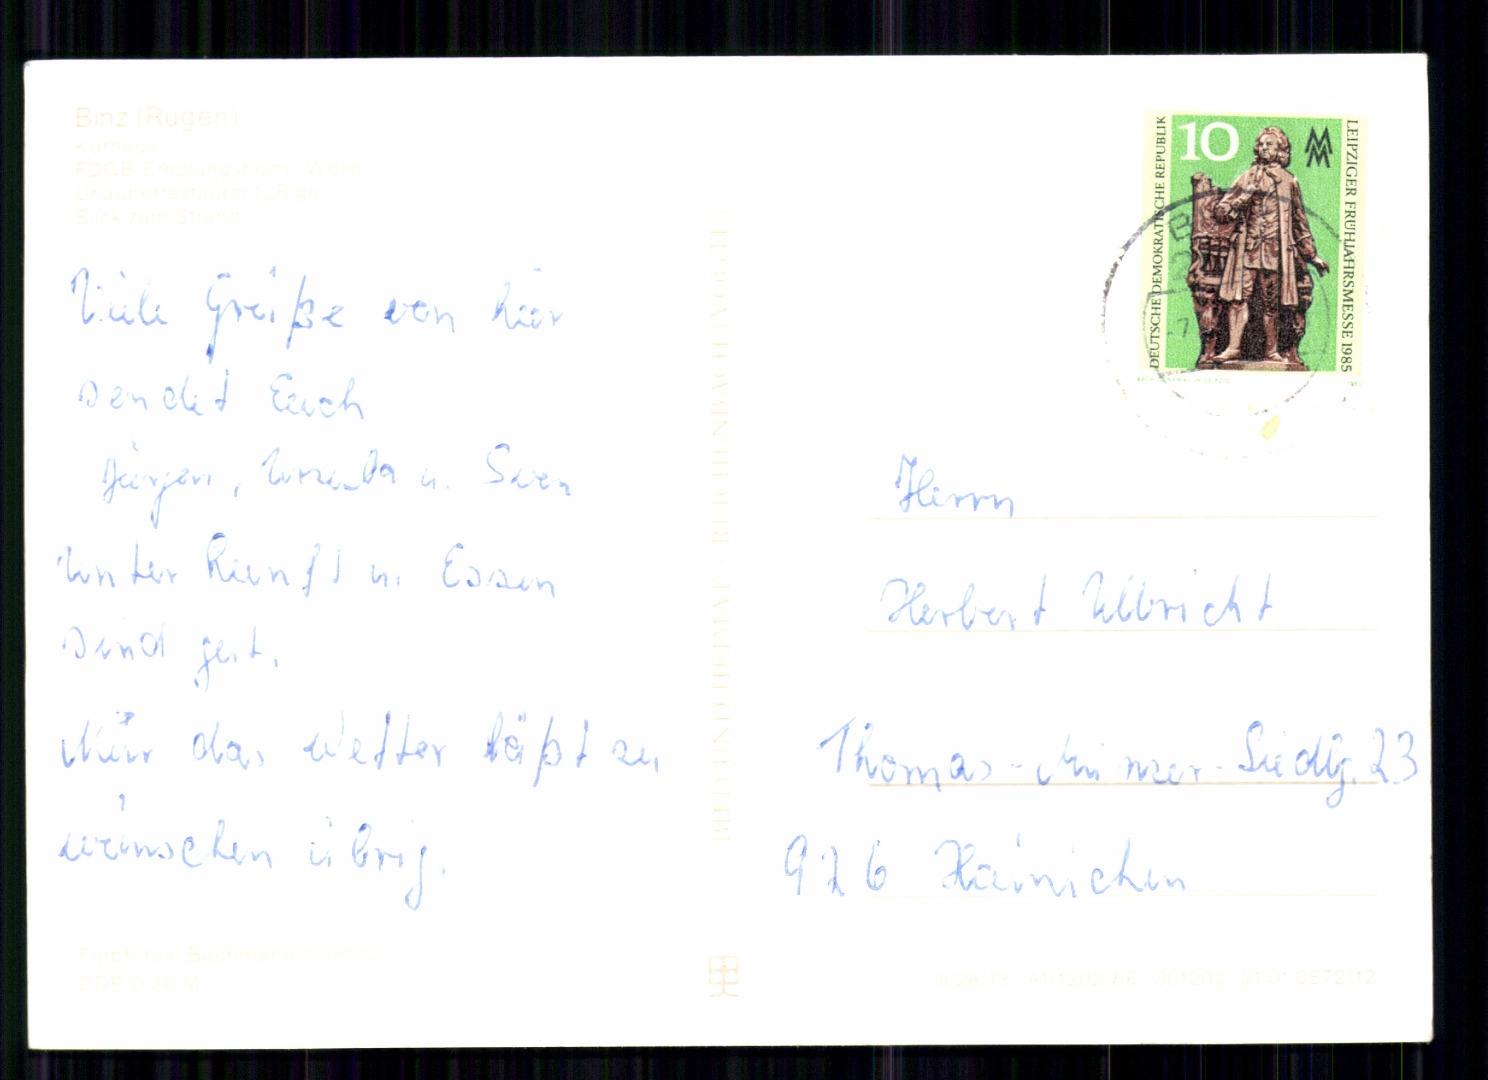 Binz (Rügen)
Kurhaus
Blick zum Strand
Viele Grüße von hier
sendet Euch
Jürgen, Ursula u. Sven
Unterkunft u. Essen
sind gut.
Nur das Wetter läßt zu
wünschen übrig.
BILD UND HEIMAT REICHENBACH (VOGTL)
DEUTSCHE DEMOKRATISCHE REPUBLIK
10
MM
LEIPZIGER FRÜHJAHRSMESSE 1985
Herrn
Herbert Ulbricht
Thomas-Münzer-Siedlg. 23
926 Hainichen